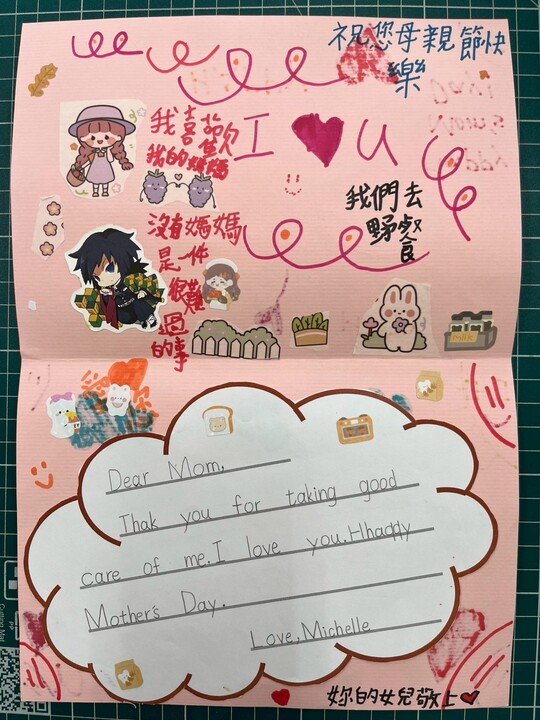 祝您母親節快
樂
我喜歡
我的媽媽
I ♥ U
我們去
野餐
沒有媽媽
是一件
很難
過
的事
milk
Dear Mom,
Thak you for taking good
care of me. I love you. Hhappy
Mother's Day.
Love, Michelle
妳的女兒敬上♡
Cutting Mat